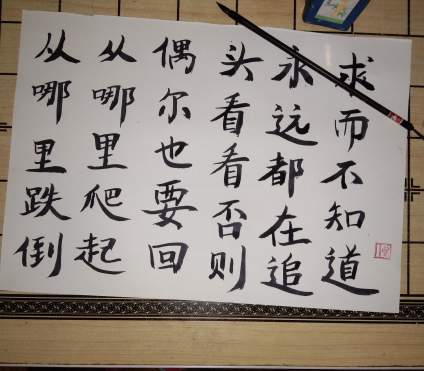 从哪里跌倒
从哪里爬起
偶尔也要回
头看看否则
永远都在追
求而不知道